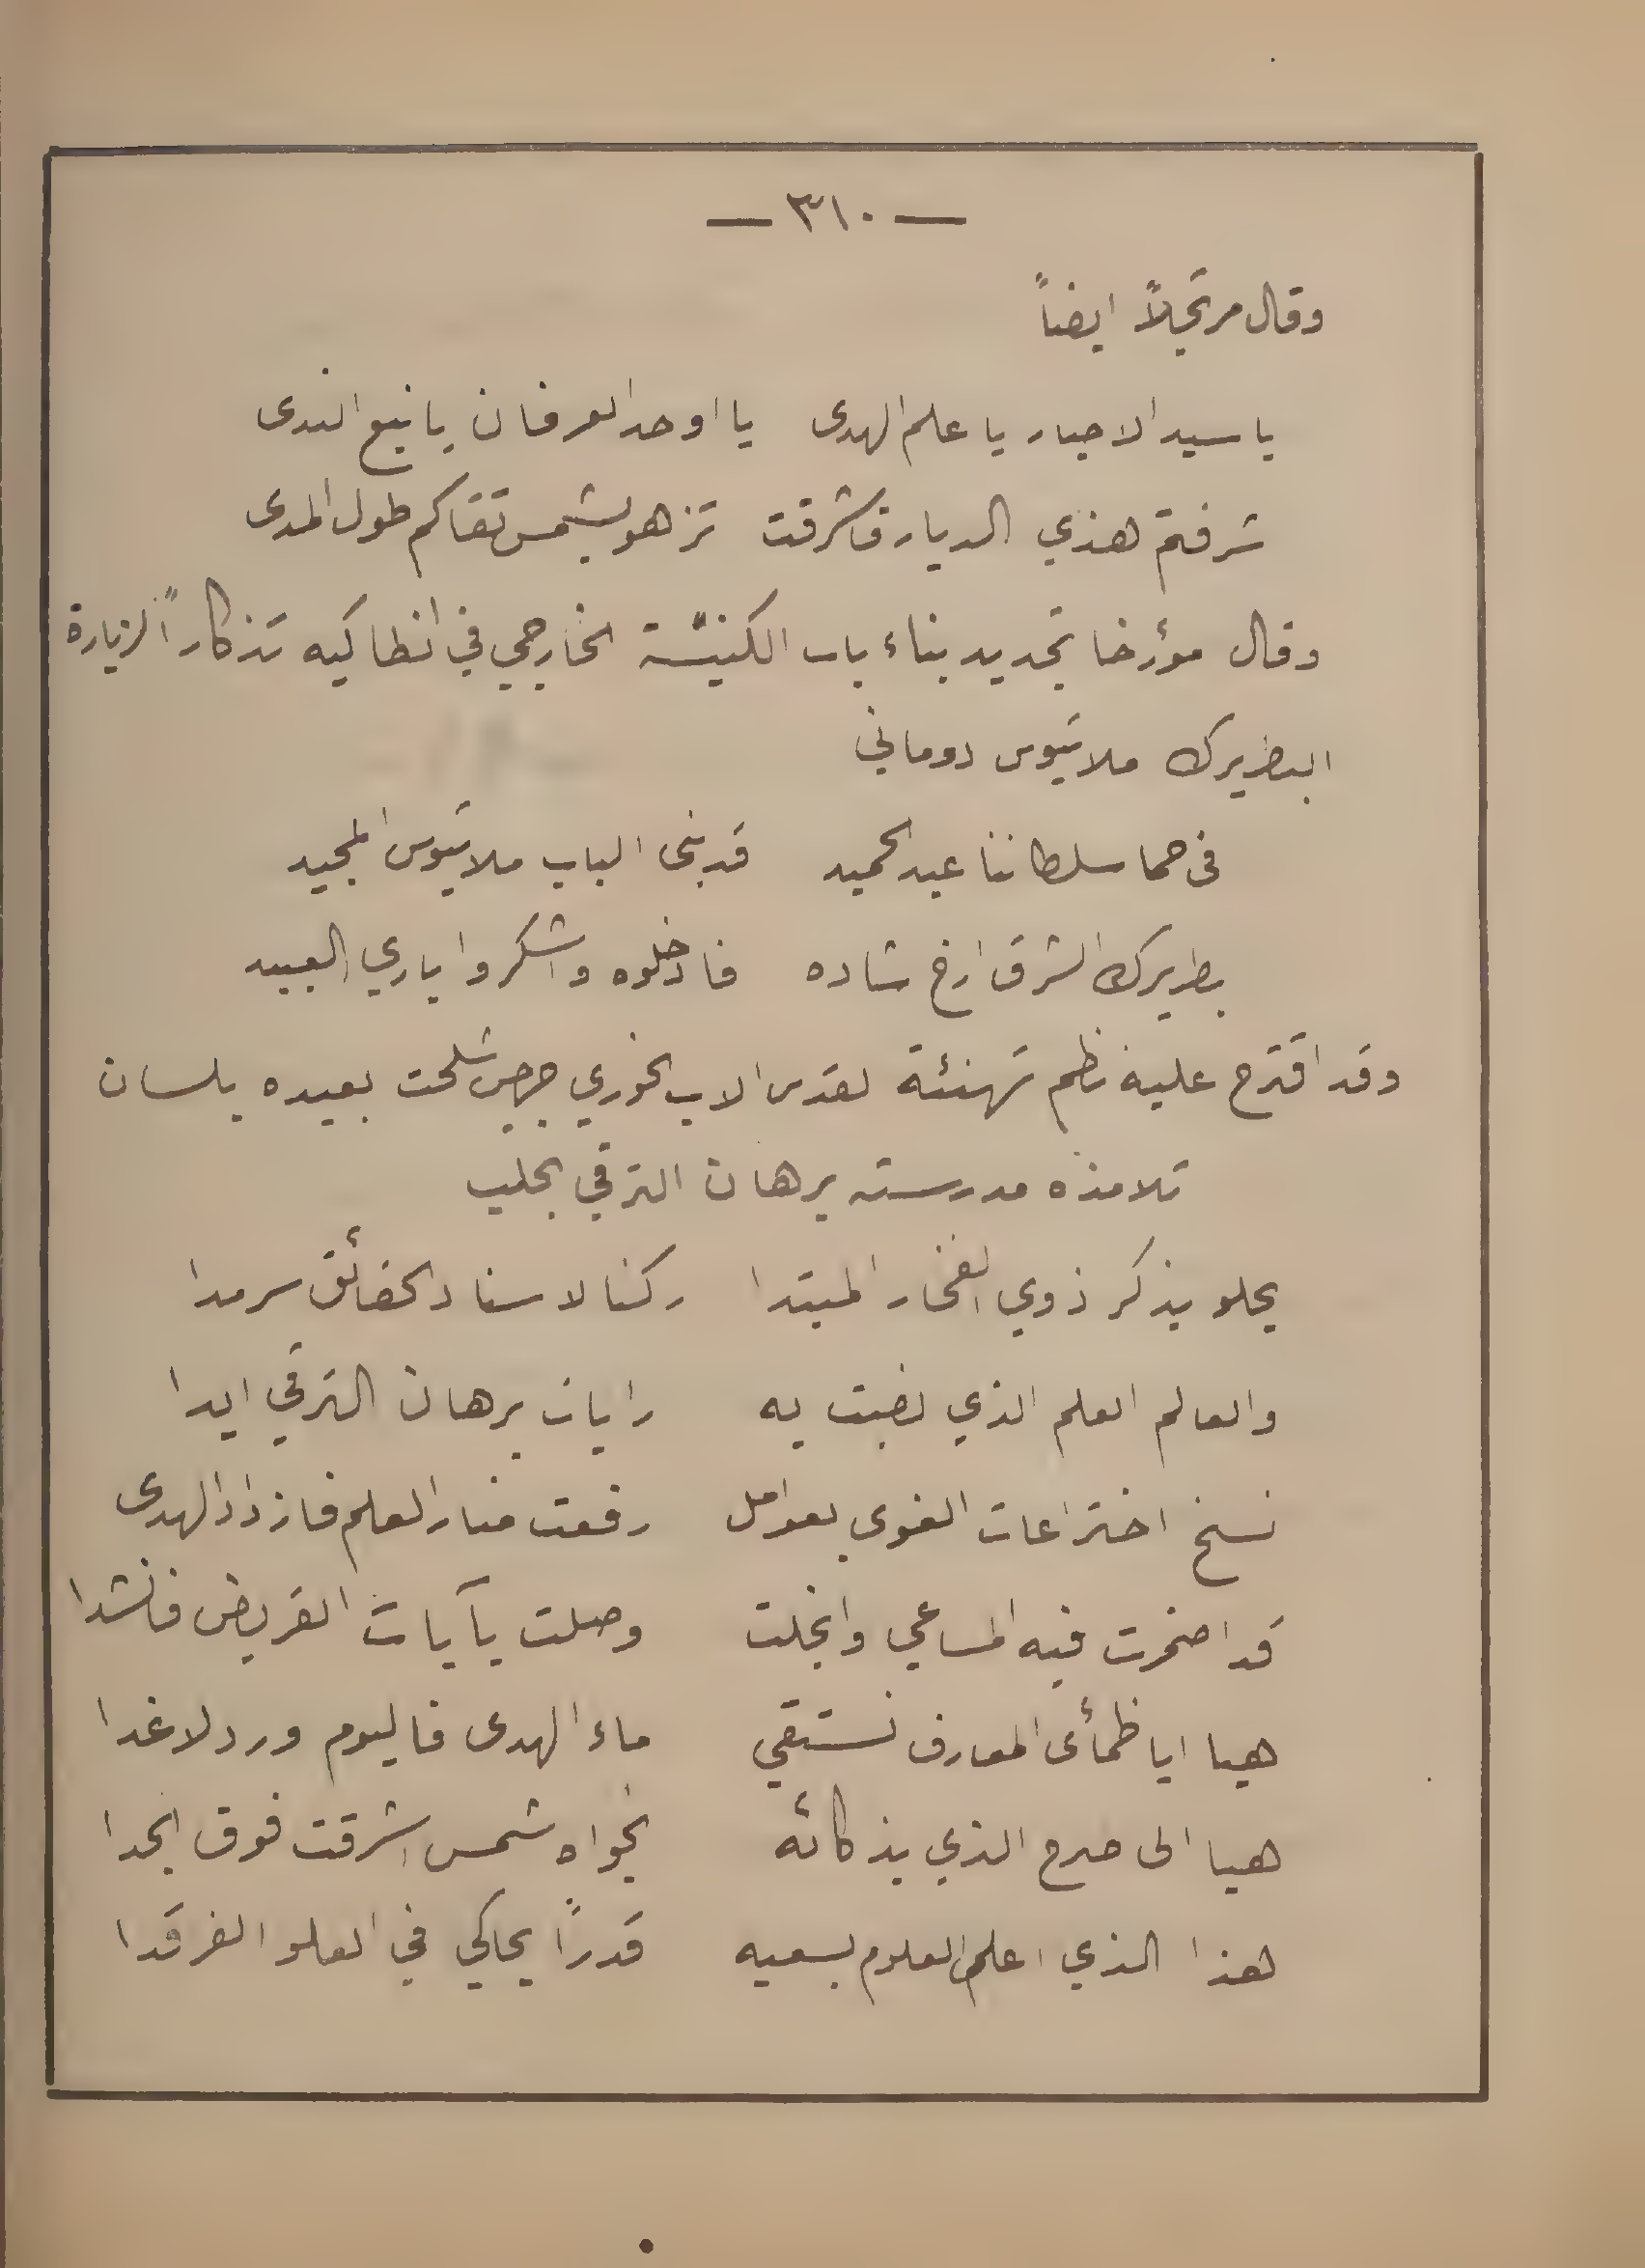 — ٣١٠ —
وقال مرتجلاً ايضاً
يا سيد الاحبار يا علم الهدى يا اوحد العرفان يا نبع الندى
شرفتم هذي الديار فاشرقت تزهو بشمس تقاكم طول المدى
وقال مؤرخا تجديد بناء باب الكنيسة الخارجي في انطاكيه تذكاراً لزيارة
البطريرك ملاتيوس دوماني
في حما سلطاننا عبد الحميد قد بنى الباب ملاتيوس المجيد
بطريرك الشرق ارخ شاده فادخلوه واشكروا باري العبيد
وقد اقترح عليه نظم تهنئة لقدس الاب الخوري جرجس شلحت بعيده بلسان
تلامذه مدرسته برهان الترقي بحلب
يحلو بذكر ذوي الفخار المبتدا ركنا لاسناد الحقائق سرمدا
والعالم العلم الذي نصبت به رايات برهان الترقي ابدا
نسخ اختراعات الغوى بعوامل رفعت منار العلم فازداد الهدى
قد اضمرت فيه المساعي وانجلت وصلت بآيات القريض فانشدا
هيا ايا ظمأى المعارف نستقي ماء الهدى فاليوم ورد لا غدا
هيا الى صرح الذي بذكائه نجواه شمس اشرقت فوق الجدا
هذا الذي اعلى العلوم بسعيه قدراً يحاكي في العلو الفرقدا